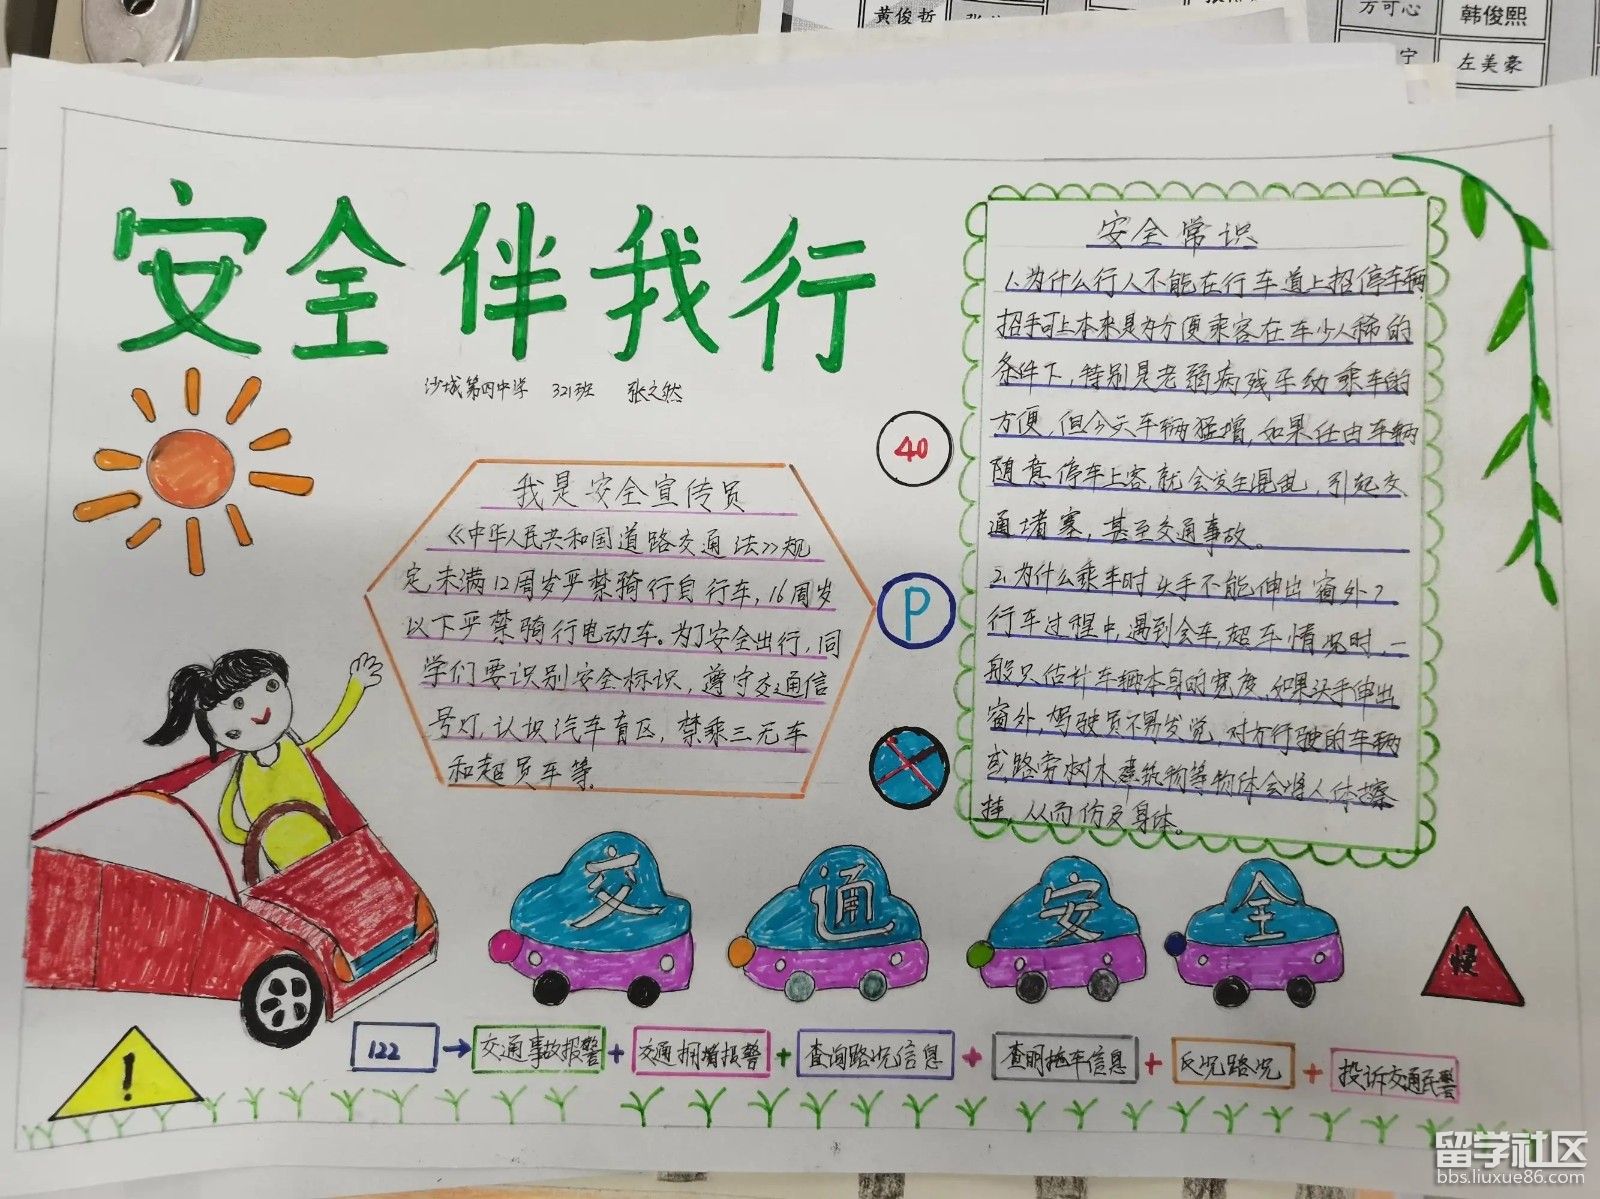 黄俊哲
万可心
韩俊熙
宁
左美豪
安全伴我行
沙城第四中学 321班 张之然
我是安全宣传员
《中华人民共和国道路交通法》规
定,未满12周岁严禁骑行自行车,16周岁
以下严禁骑行电动车。为了安全出行,同
学们要识别安全标识,遵守交通信
号灯,认识汽车盲区,禁乘三无车
和超员车等.
40
P
安全常识
1.为什么行人不能在行车道上招停车辆
招手可上本来是为方便乘客在车少人稀的
条件下,特别是老弱病残孕幼乘车的
方便,但今天车辆猛增,如果任由车辆
随意停车上客,就会发生混乱,引起交
通堵塞,甚至交通事故。
2.为什么乘车时头手不能伸出窗外?
行车过程中,遇到会车,超车情况时,一
般只估计车辆本身的宽度,如果头手伸出
窗外,驾驶员不易发觉,对方行驶的车辆
或路旁树木建筑物等物体会将人体擦
挂,从而伤及身体。
交通安全
慢
!
122→交通事故报警+交通拥堵报警+查询路况信息+查明拖车信息+反况路况+投诉交通民警
留学社区
bbs.liuxue86.com